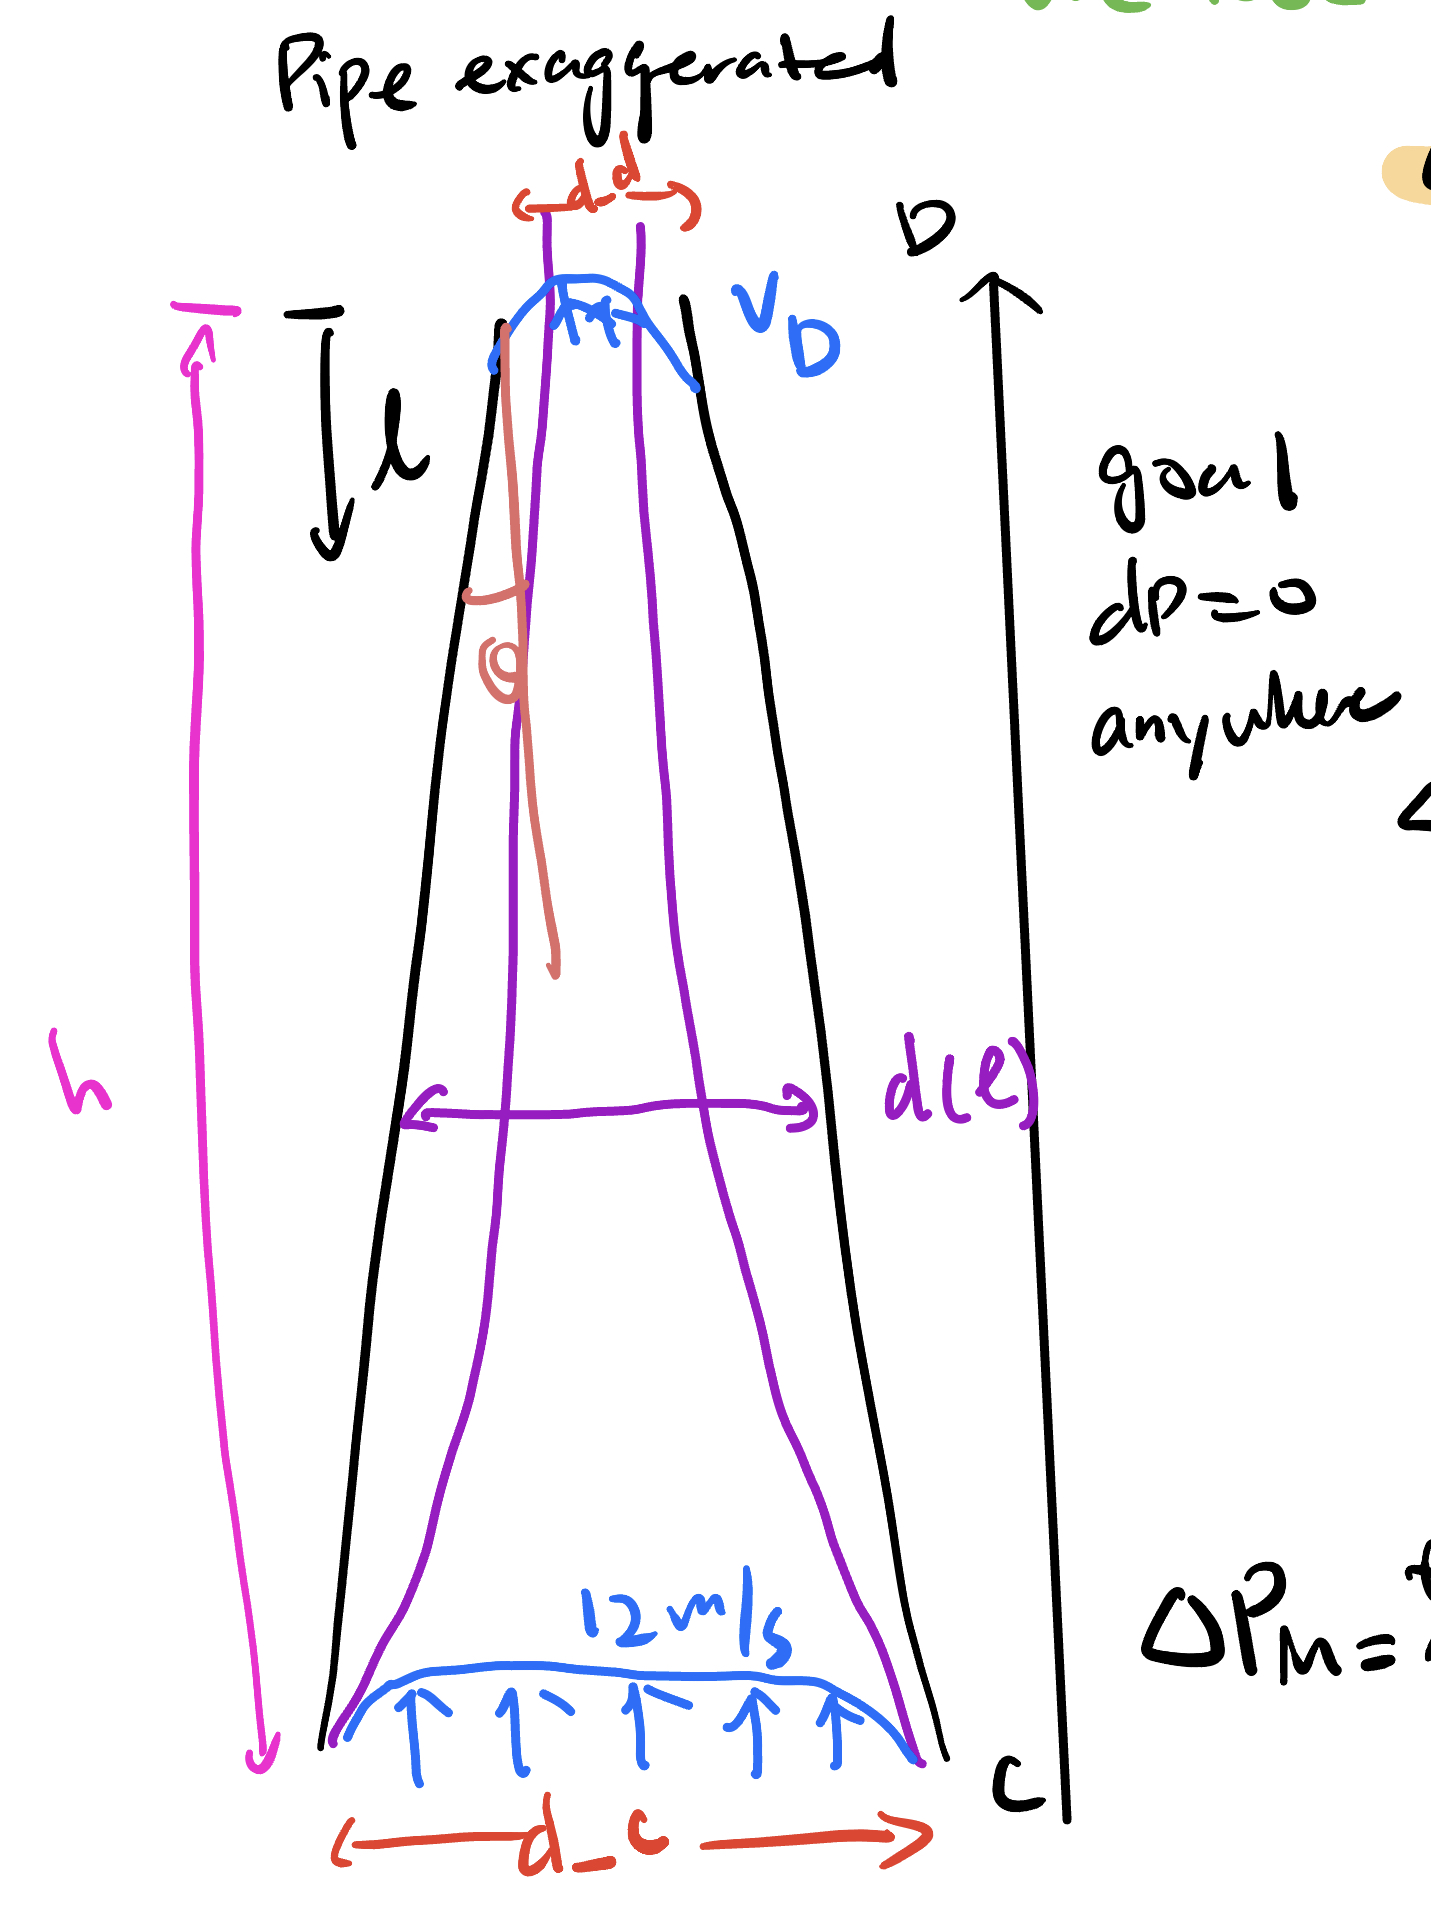 Pipe exaggerated
d_d
D
V_D
l
goal
dP=0
anywhere
θ
h
d(l)
12 m/s
ΔP_M =
C
d_c